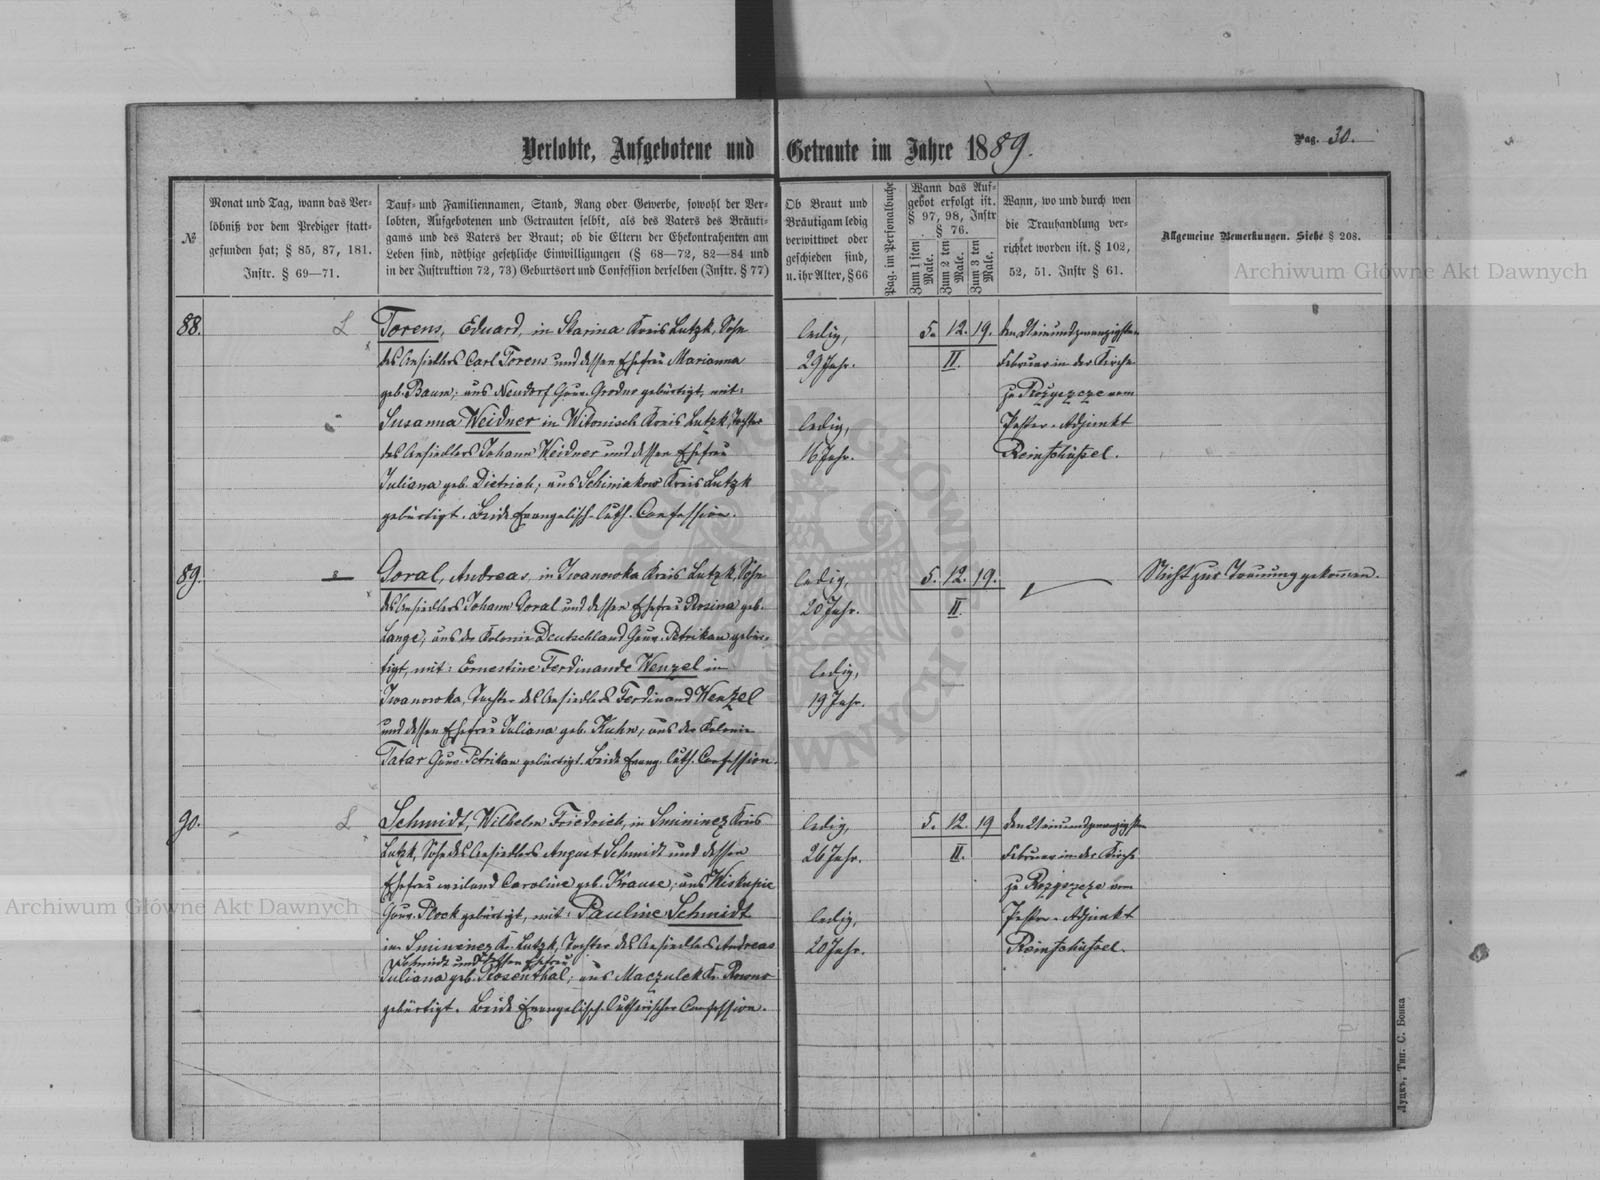 Verlobte, Aufgebotene und Getraute im Jahre 1889.
Pag. 30.
№
Monat und Tag, wann das Ver-
löbniß vor dem Prediger statt-
gefunden hat; § 85, 87, 181.
Instr. § 69—71.
Tauf- und Familiennamen, Stand, Rang oder Gewerbe, sowohl der Ver-
lobten, Aufgebotenen und Getrauten selbst, als des Vaters des Bräuti-
gams und des Vaters der Braut; ob die Eltern der Ehekontrahenten am
Leben sind, nöthige gesetzliche Einwilligungen (§ 68—72, 82—84 und
in der Instruktion 72, 73) Geburtsort und Confession derselben (Instr. § 77)
Ob Braut und
Bräutigam ledig
verwittwet oder
geschieden sind,
u. ihr Alter, § 66
Pag. im Personalbuche
Wann das Auf-
gebot erfolgt ist.
§ 97, 98, Instr
§ 76.
Zum 1 sten
Male.
Zum 2 ten
Male.
Zum 3 ten
Male.
Wann, wo und durch wen
die Trauhandlung ver-
richtet worden ist. § 102,
52, 51. Instr § 61.
Allgemeine Bemerkungen. Siehe § 208.
88.
L
Torens, Eduard, in Starina Kreis Lutzk, Sohn
des Ansiedlers Carl Torens und dessen Ehefrau Marianna
geb. Baum, aus Neudorf Gouv. Grodno gebürtigt, mit:
Susanna Weidner in Witonisch Kreis Lutzk, Tochter
des Ansiedlers Johann Weidner und dessen Ehefrau
Juliana geb. Dietrich, aus Schiniakow Kreis Lutzk
gebürtigt. Beide Evangelisch-Luth. Confession.
ledig,
29 Jahr.
ledig,
16 Jahr.
5. 12. 19.
II.
den Einundzwanzigsten
Februar in der Kirche
zu Rozyszcze vom
Pastor-Adjunkt
Reinschüssel.
89.
Goral, Andreas, in Iwanowka Kreis Lutzk, Sohn
des Ansiedlers Johann Goral und dessen Ehefrau Rosina geb.
Lange, aus der Kolonie Deutschland Gouv. Petrikau gebür-
tigt, mit: Ernestine Ferdinande Wenzel in
Iwanowka, Tochter des Ansiedlers Ferdinand Wenzel
und dessen Ehefrau Juliana geb. Kuhn, aus der Kolonie
Tatar Gouv. Petrikau gebürtigt. Beide Evang. Luth. Confession.
ledig,
20 Jahr.
ledig,
19 Jahr.
5. 12. 19.
II.
Nicht zur Trauung gekommen.
90.
L
Schmidt, Wilhelm Friedrich, in Smininez Kreis
Lutzk, Sohn des Ansiedlers August Schmidt und dessen
Ehefrau weiland Caroline geb. Krause, aus Wiskupie
Gouv. Plock gebürtigt, mit: Pauline Schmidt
in Smininez Kr. Lutzk, Tochter des Ansiedlers Andreas
Schmidt und dessen Ehefrau
Juliana geb. Rosenthal, aus Maczulek Kr. Rowno
gebürtigt. Beide Evangelisch-Lutherischer Confession.
ledig,
26 Jahr.
ledig,
20 Jahr.
5. 12. 19
II.
den Einundzwanzigsten
Februar in der Kirche
zu Rozyszcze vom
Pastor-Adjunkt
Reinschüssel.
Луцкъ, Тип. С. Бонка
Archiwum Główne Akt Dawnych
Archiwum Główne Akt Dawnych